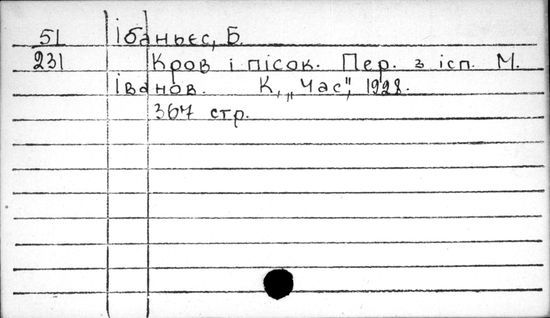 51 Ібаньєс, Б.
231 Кров і пісок. Пер. з ісп. М.
Іванов. К, „Час", 1928.
367 стр.